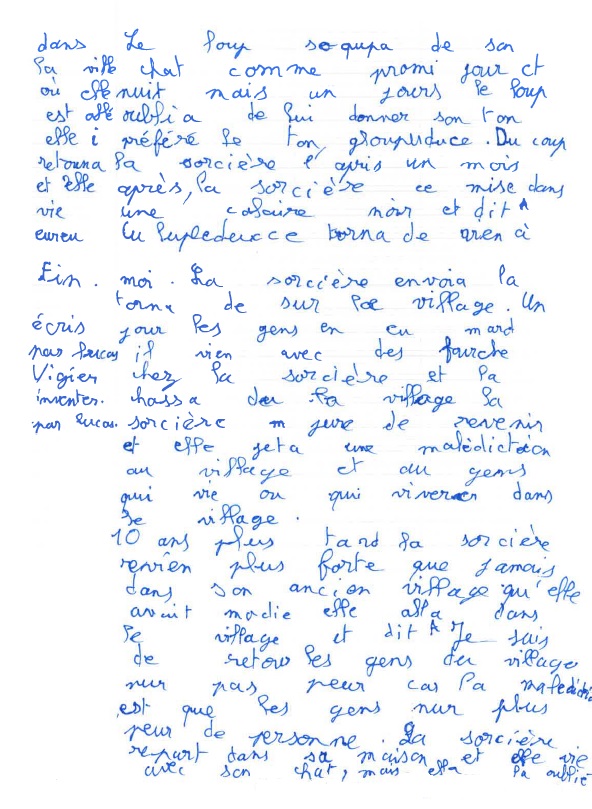 dans Le loup soqupa de son
la ville chat comme promi jour et
où elle nuit mais un jours le loup
est allé oublia de lui donner son ton
elle i préféré le ton, Du coup
retourna la sorcière l'après un mois
et elle après, la sorcière ce mise dans
vie une colaire noir et dit
eureu torna de
Fin. moi. La sorcière envoia la
torna de sur le village. Un
écris jour les gens en eu mard
par Lucas il vien avec des fourche
Vigier chez la sorcière et la
inventer. chassa du la village la
par Lucas. sorcière m jure de revenir
et elle jeta une malédiction
au village et au gens
qui vie ou qui viverer dans
le village.
10 ans plus tard la sorcière
revien plus forte que jamais
dans son ancien village qu'elle
avait modie elle alla dans
le village et dit Je suis
de retour les gens du village
nur pas peur car la malediction
est que les gens nur plus
peur de personne. La sorcière
repart dans sa maison et elle vie
avec son chat, mais ella la oublié